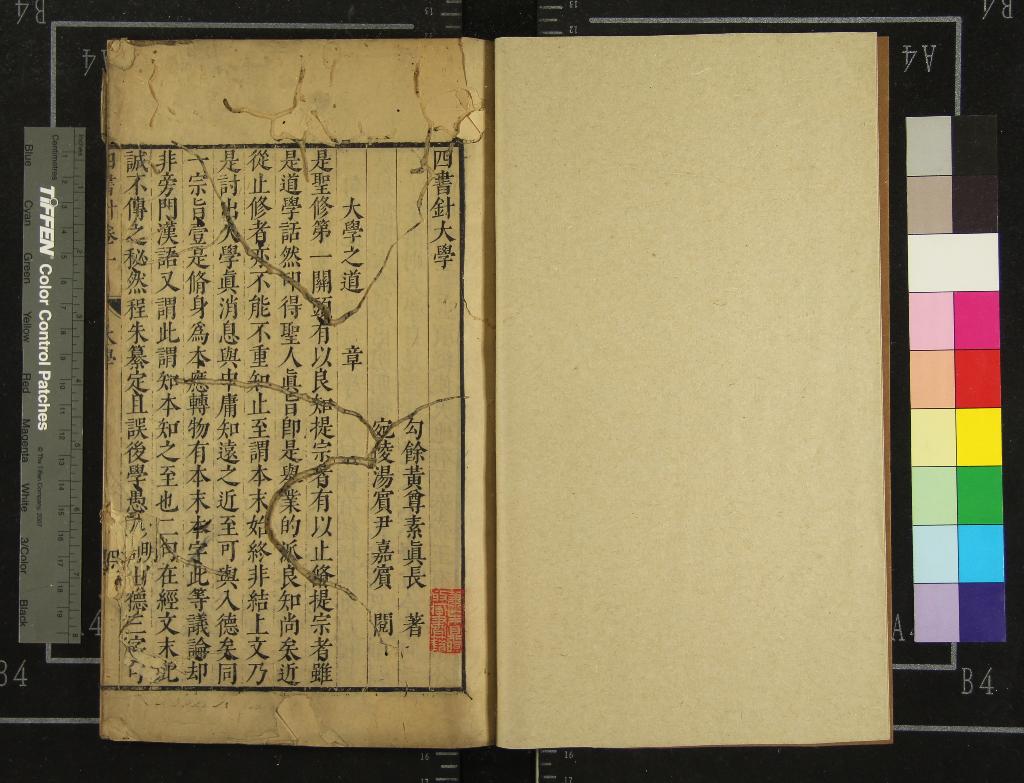 四書針大學
勾餘黃尊素眞長 著
宛陵湯賓尹嘉賓 閱
大學之道 章
是聖修第一關頭有以良知提宗者有以止脩提宗者雖
是道學話然可得聖人眞旨卽是舉業的派良知尚矣近
從止修者亦不能不重知止至謂本末始終非結上文乃
是討出大學眞消息與中庸知遠之近至可與入德矣同
一宗旨壹是脩身爲本應轉物有本末本字此等議論却
非旁門漢語又謂此謂知本知之至也二句在經文末此
誠不傳之秘然程朱纂定且誤後學愚
德
四書針卷一
大學
TIFFEN Color Control Patches
© The Tiffen Company, 2007
Centimetres
Inches
Blue Cyan Green Yellow Red Magenta White 3/Color Black
B4
A4
B4
A4
A4
B4
A4
B4